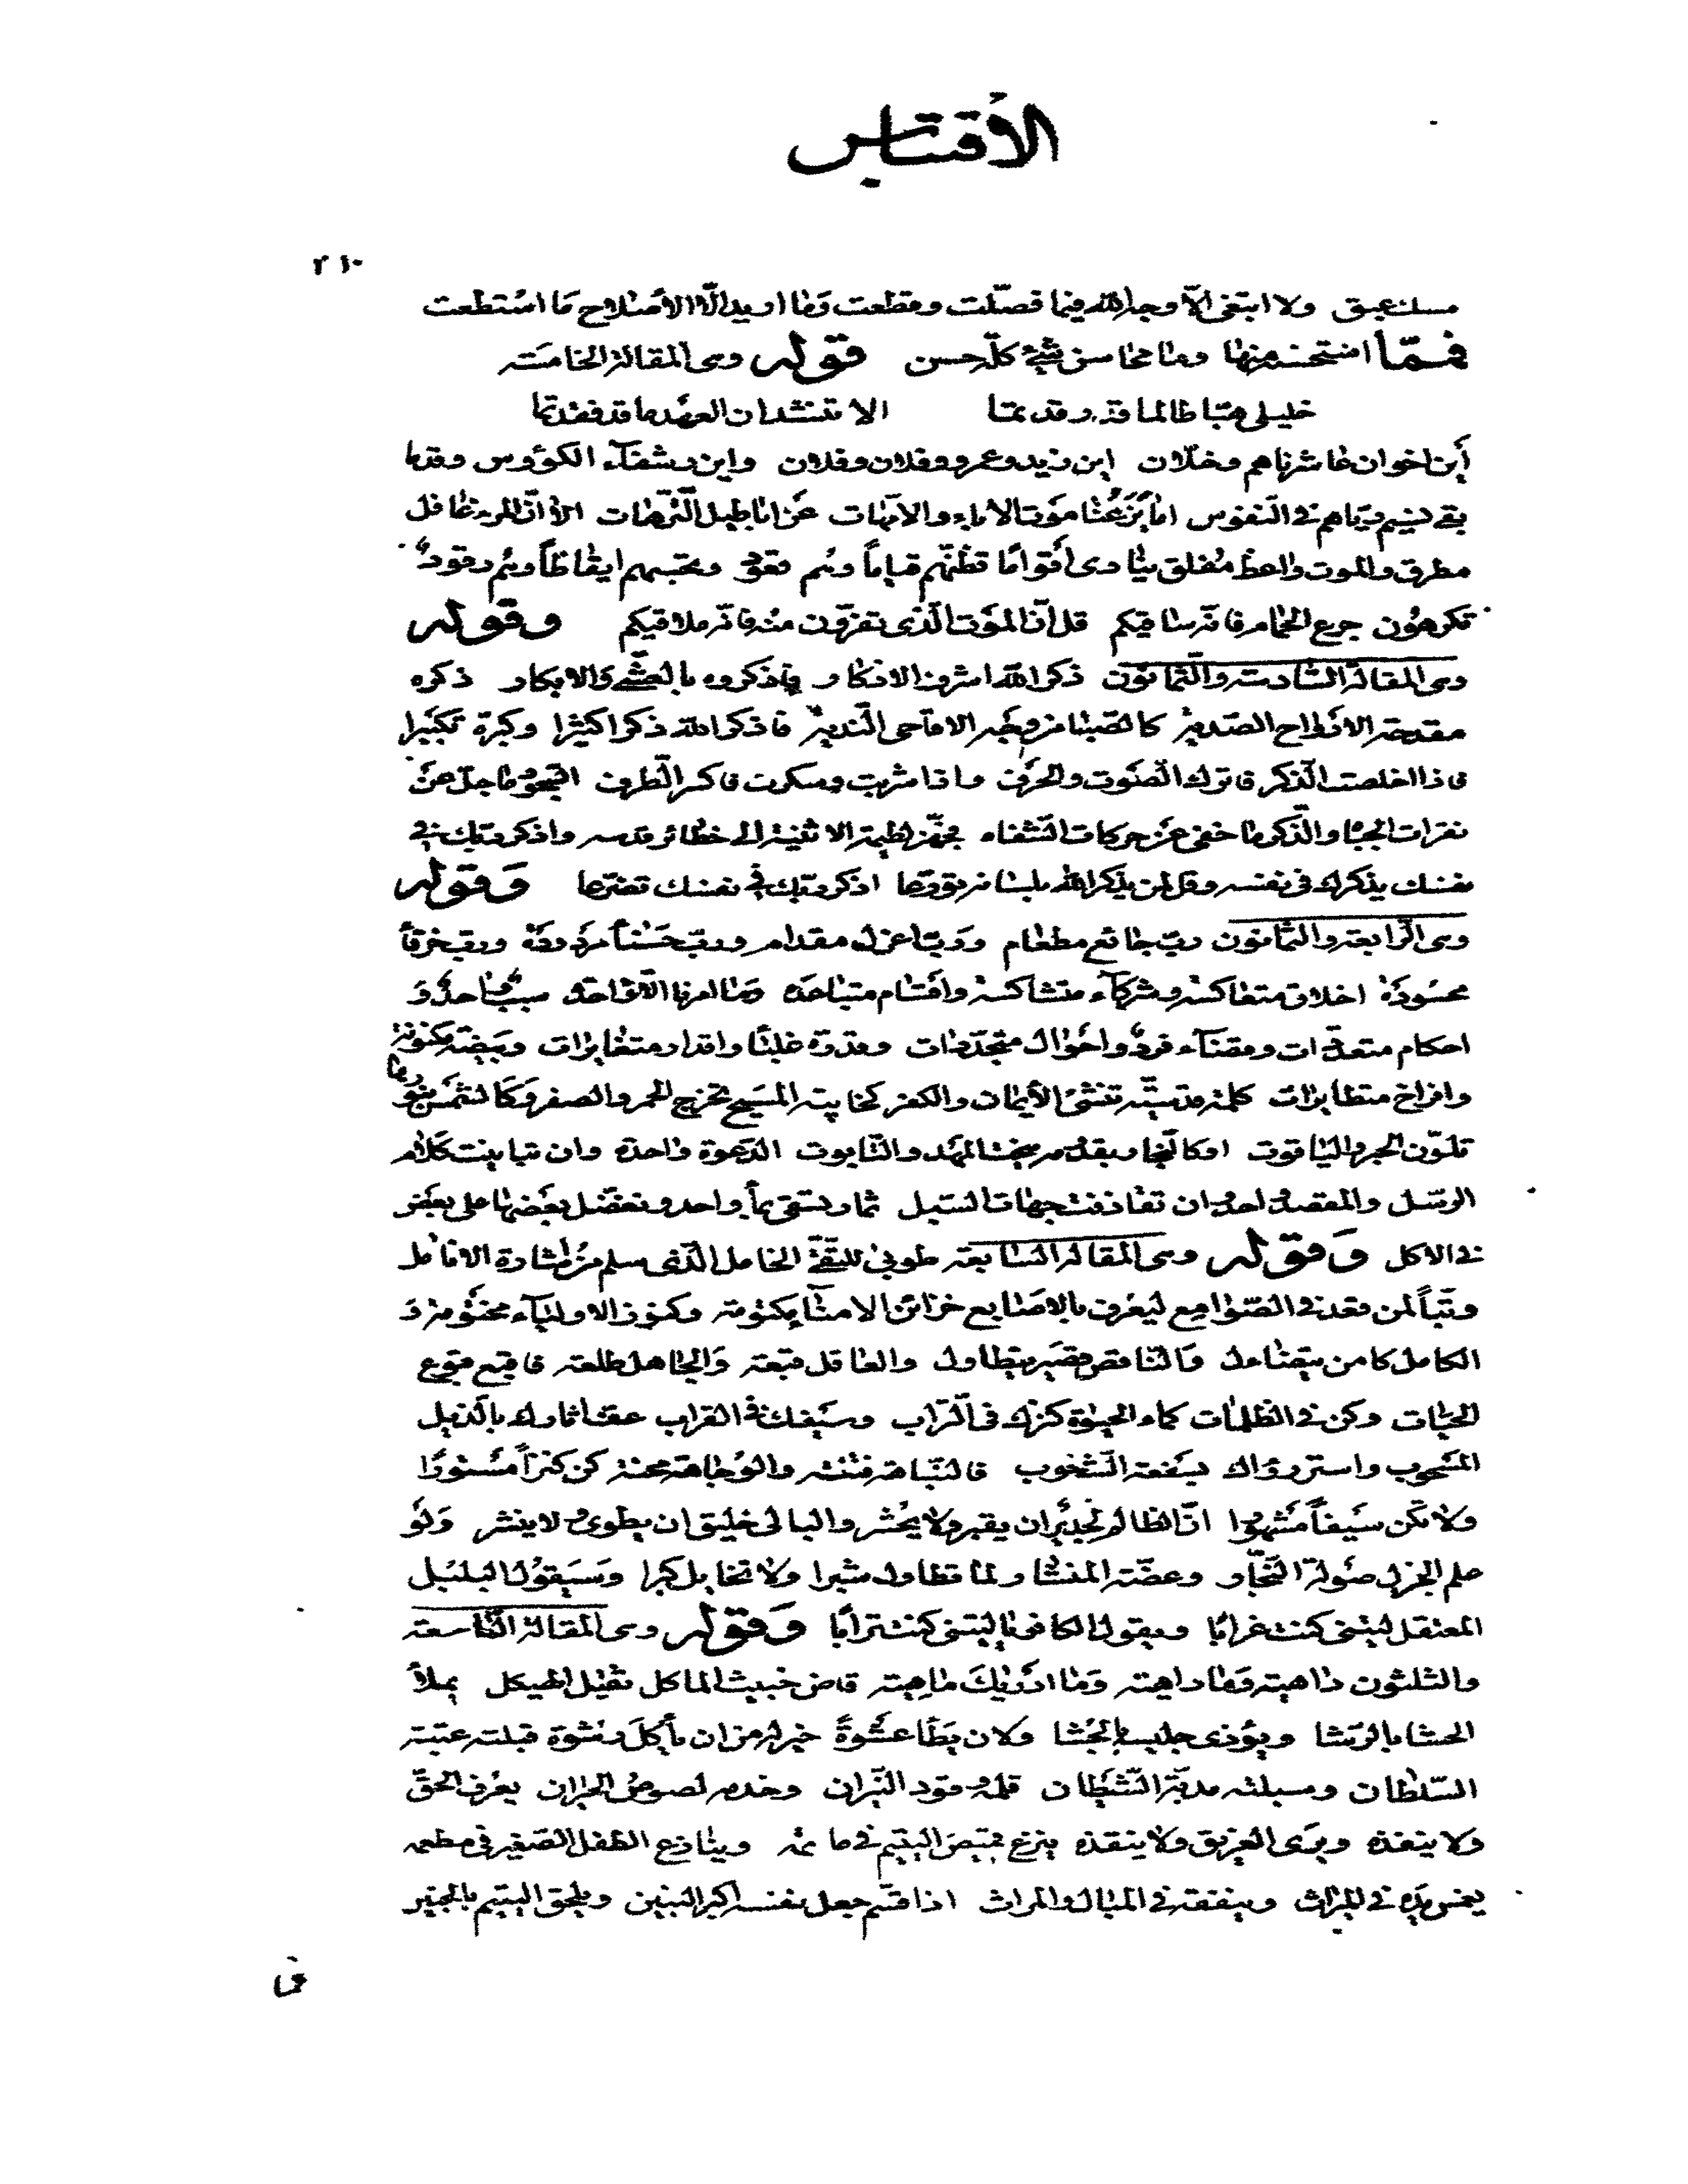 الاقتباس
٢١٠
مسك عبق ولا ابتغى الّا وجه الله فيما فصّلت وقطعت وَما اريد الّا الأصلاح مَا اسْتطعت
فممّا استحسن منها وما محاسن شئ كلّه حسن قوله وهى المقالة الخامسَة
خليلى هبّا طالما قد رقدتما الا تنشدان العهد ما قد فقدتما
أين اخوان عاشرناهم وخلّان اين زيد وعمرو وفلان وفلان واين رشفآء الكؤوس وقد ما
بقى نسيم ريّاهم فى النّفوس امَا يَزَعُنَا موت الآباء والامّهات عَن اباطيل التّرّهات الا انّ المرء غافل
مطرق والموت واعظ مفلق ينادى أقوامًا تظنّهم قياماً وهم قعود وتحسبهم ايقاظاً وهم رقود
تكرهون جرع الحمام فانّه ساقيكم قل انّ الموت الّذى تفرّون منه فانّه ملاقيكم وقوله
وهى المقالة السّادسة والثّمانون ذكر الله اشرف الاذكار فاذكروه بالعشىّ والابكار ذكره
مقدحة الارواح الصّدية كالصّبا مروحة الاقاحى النّدية فاذكر الله ذكرا كثيرا وكبّره تكبيرا
فاذا اخلصت الذّكر فاترك الصّوت والحرف واذا شربت وسكرت فاكسر الظرف الجهر ما جلّ عن
نقرات الجشا والذّكر ما خفى عن حركات الشّفاه واذكر ربّك فى
نفسك يذكرك فى نفسه وقل لمن يذكر الله بلسانه اذكر ربّك فى نفسك تضرّعا وَقوله
وهى الرّابعة والثمانون ربّ جائع مطعام وربّ اعزل مقدام وربّ حسناء وربّ خرقاء
محسودة اخلاق متعاكسة وشركآء متشاكسة واقسام متباعدة وما امرنا الّا واحدة سبب واحد وَ
احكام متعدّدات وقضآء فرد واحوال متجدّدات وقدرة غلبا واقدار متغايرات وبيضة مكنونة
وافراخ متطايرات كلمة قدسيّة تنشئ الأيمان والكفر كخابية المسيح تخرج الحمر والصفر وكالشّمس
تلوّن الحجر والياقوت الدّعوة واحدة وان تباينت كلام
الرسل والمقصد احد وان تقاذفت جهات السّبل ثمار تسقى بمآء واحد ونفضّل بعضها على بعض
فى الاكل وَقوله وهى المقالة السّابعة طوبى للتقىّ الخامل الّذى سلم من اشارة الانامل
وتبّاً لمن قعد فى الصّوامع ليعرف بالاصابع خزائن الامناء مكتومة وكنوز الاولياء مختومة وَ
الكامل كامن يتضاءل والناقص قصير يتطاول والعاقل قبعة والجاهل طلعة فاقبع قبوع
الحيّات وكن فى الظلمات كماء الحيوة كنزك فى التّراب وسيفك فى القراب عفّ آثارك بالذيل
المسحوب واستر رواك بسفعة الشّحوب فالنّباهة فتنة والوجاهة محنة كن كنزاً مستورًا
ولا تكن سيفاً مشهورا انّ الظالم لجدير ان يقبر ولا يحشر والبالى خليق ان يطوى ولا ينشر وَلَو
علم الجزل صولة النّجّار وعضّة المنشار لما تطاول شبرا ولا تخايل كبرا وَسيقول البلبل
المعتقل ليتنى كنت غرابًا ويقول الكافر يا ليتنى كنت ترابًا وَقوله وهى المقالة التّاسعة
والثلثون داهية وَما داهية وَما ادريك ما هيه قاض خبيث الماكل ثقيل الهيكل يملأ
الحشا بالرّشا ويؤذى جليسه بالجشا ولان يَطَأ عشوةً خير له من ان يأكل رشوة قبلته عتبة
السّلطان ومسبلته مدبّة الشّيطان قلمه وقود النّيران وخدمه لصوص الجيران يعرف الحقّ
ولا ينفذه ويرى الغريق ولا ينقذه ينزع قميص اليتيم فى ماتمه وينازع الطّفل الصّغير فى مطعمه
يغمس يده فى الميراث وينفقه فى الميال والمراث اذا قسّم جعل نفسه اكبر البنين ويلحق اليتيم بالجنين